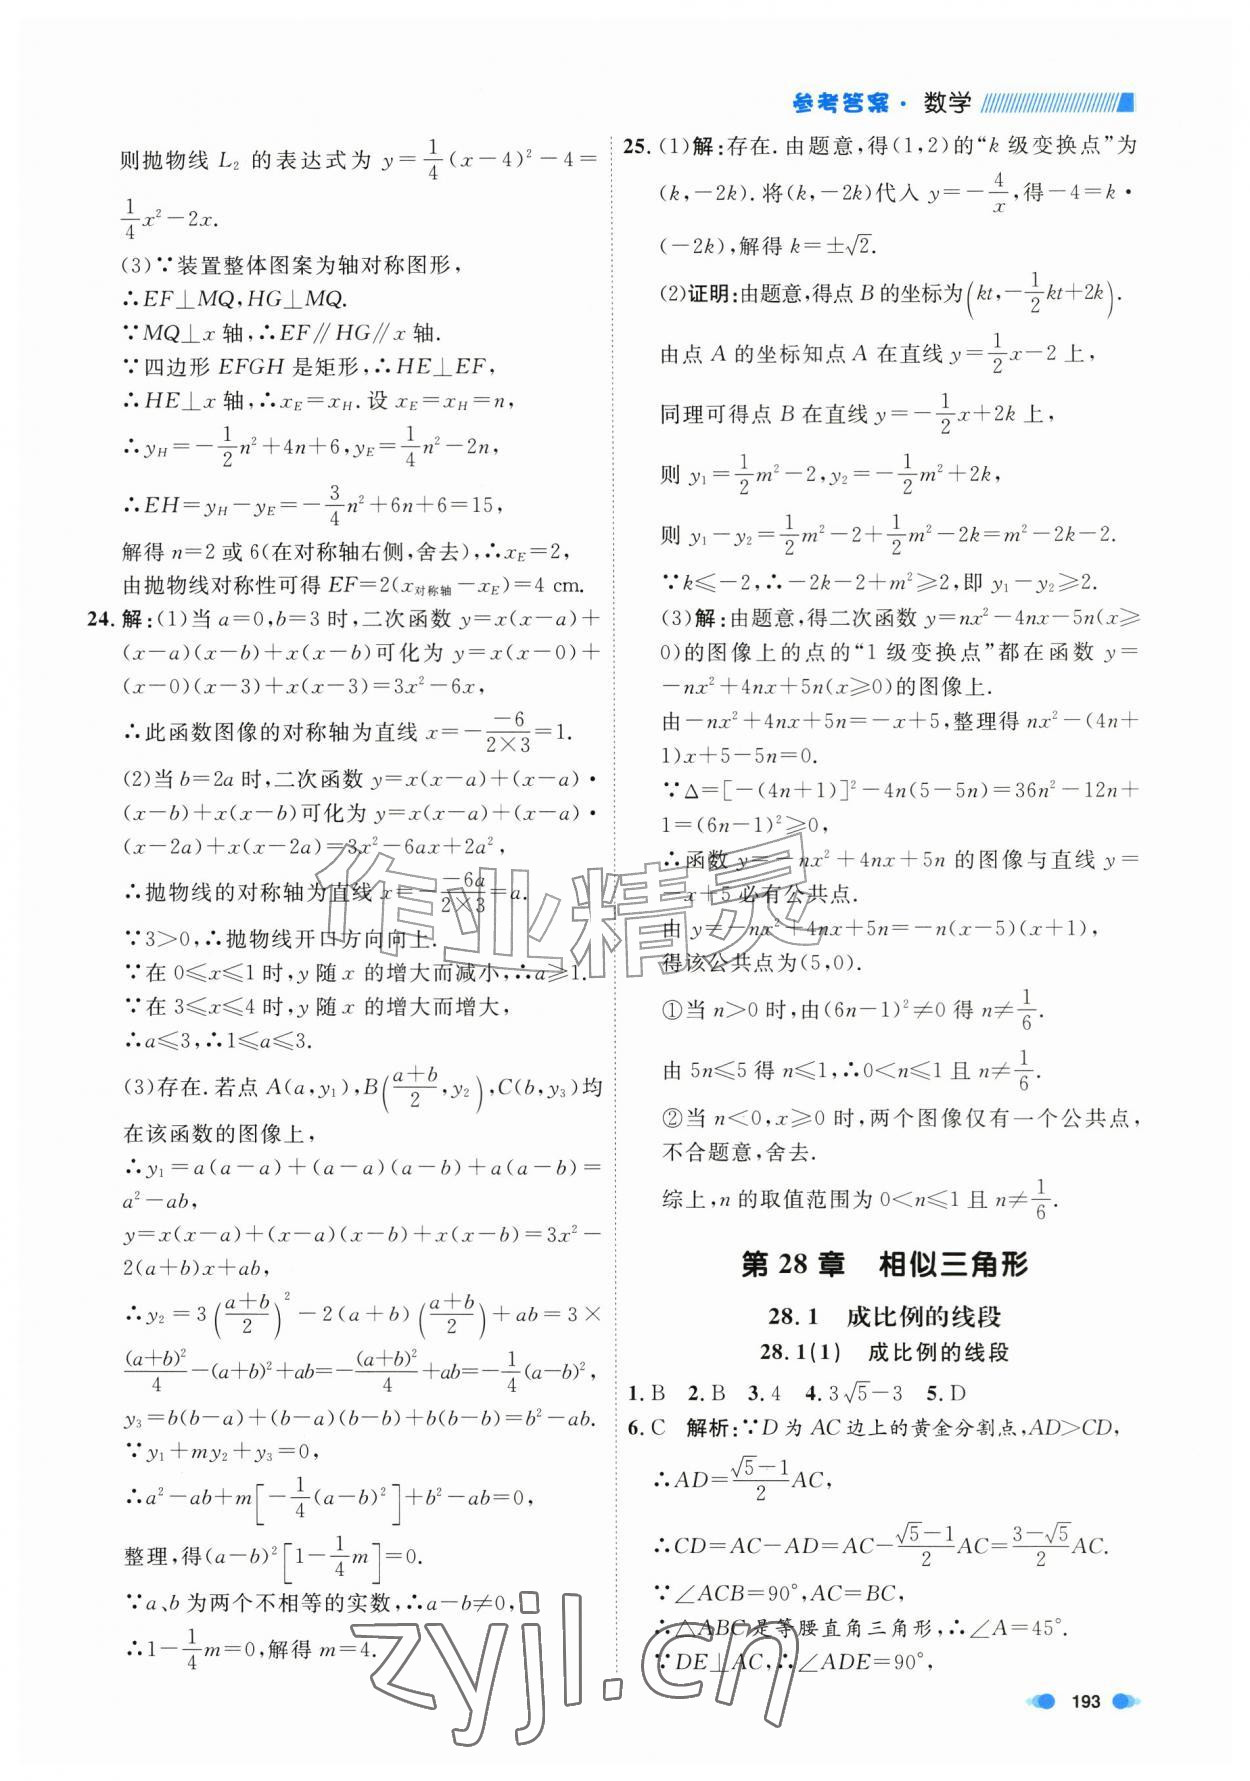 参考答案·数学
则抛物线 L₂ 的表达式为 y=1/4(x-4)²-4=
1/4x²-2x.
(3)∵装置整体图案为轴对称图形,
∴EF⊥MQ,HG⊥MQ.
∵MQ⊥x 轴,∴EF∥HG∥x 轴.
∵四边形 EFGH 是矩形,∴HE⊥EF,
∴HE⊥x 轴,∴x_E=x_H.设 x_E=x_H=n,
∴y_H=-1/2n²+4n+6,y_E=1/4n²-2n,
∴EH=y_H-y_E=-3/4n²+6n+6=15,
解得 n=2 或 6(在对称轴右侧,舍去),∴x_E=2,
由抛物线对称性可得 EF=2(x_对称轴-x_E)=4 cm.
24.解:(1)当 a=0,b=3 时,二次函数 y=x(x-a)+
(x-a)(x-b)+x(x-b)可化为 y=x(x-0)+
(x-0)(x-3)+x(x-3)=3x²-6x,
∴此函数图像的对称轴为直线 x=-(-6)/(2×3)=1.
(2)当 b=2a 时,二次函数 y=x(x-a)+(x-a)·
(x-b)+x(x-b)可化为 y=x(x-a)+(x-a)·
(x-2a)+x(x-2a)=3x²-6ax+2a²,
∴抛物线的对称轴为直线 x=-(-6a)/(2×3)=a.
∵3>0,∴抛物线开口方向向上.
∵在 0≤x≤1 时,y 随 x 的增大而减小,∴a≥1.
∵在 3≤x≤4 时,y 随 x 的增大而增大,
∴a≤3,∴1≤a≤3.
(3)存在.若点 A(a,y₁),B((a+b)/2,y₂),C(b,y₃)均
在该函数的图像上,
∴y₁=a(a-a)+(a-a)(a-b)+a(a-b)=
a²-ab,
y=x(x-a)+(x-a)(x-b)+x(x-b)=3x²-
2(a+b)x+ab,
∴y₂=3((a+b)/2)²-2(a+b)((a+b)/2)+ab=3×
(a+b)²/4-(a+b)²+ab=-(a+b)²/4+ab=-1/4(a-b)²,
y₃=b(b-a)+(b-a)(b-b)+b(b-b)=b²-ab.
∵y₁+my₂+y₃=0,
∴a²-ab+m[-1/4(a-b)²]+b²-ab=0,
整理,得(a-b)²[1-1/4m]=0.
∵a、b 为两个不相等的实数,∴a-b≠0,
∴1-1/4m=0,解得 m=4.
25.(1)解:存在.由题意,得(1,2)的“k 级变换点”为
(k,-2k).将(k,-2k)代入 y=-4/x,得-4=k·
(-2k),解得 k=±√2.
(2)证明:由题意,得点 B 的坐标为(kt,-1/2kt+2k).
由点 A 的坐标知点 A 在直线 y=1/2x-2 上,
同理可得点 B 在直线 y=-1/2x+2k 上,
则 y₁=1/2m²-2,y₂=-1/2m²+2k,
则 y₁-y₂=1/2m²-2+1/2m²-2k=m²-2k-2.
∵k≤-2,∴-2k-2+m²≥2,即 y₁-y₂≥2.
(3)解:由题意,得二次函数 y=nx²-4nx-5n(x≥
0)的图像上的点的“1 级变换点”都在函数 y=
-nx²+4nx+5n(x≥0)的图像上.
由-nx²+4nx+5n=-x+5,整理得 nx²-(4n+
1)x+5-5n=0.
∵Δ=[-(4n+1)]²-4n(5-5n)=36n²-12n+
1=(6n-1)²≥0,
∴函数 y=-nx²+4nx+5n 的图像与直线 y=
-x+5 必有公共点.
由 y=-nx²+4nx+5n=-n(x-5)(x+1),
得该公共点为(5,0).
①当 n>0 时,由(6n-1)²≠0 得 n≠1/6.
由 5n≤5 得 n≤1,∴0<n≤1 且 n≠1/6.
②当 n<0,x≥0 时,两个图像仅有一个公共点,
不合题意,舍去.
综上,n 的取值范围为 0<n≤1 且 n≠1/6.
第 28 章 相似三角形
28.1 成比例的线段
28.1(1) 成比例的线段
1.B 2.B 3.4 4.3√5-3 5.D
6.C 解析:∵D 为 AC 边上的黄金分割点,AD>CD,
∴AD=(√5-1)/2AC,
∴CD=AC-AD=AC-(√5-1)/2AC=(3-√5)/2AC.
∵∠ACB=90°,AC=BC,
∴△ABC 是等腰直角三角形,∴∠A=45°.
∵DE⊥AC,∴∠ADE=90°,
193
作业精灵
zyjl.cn